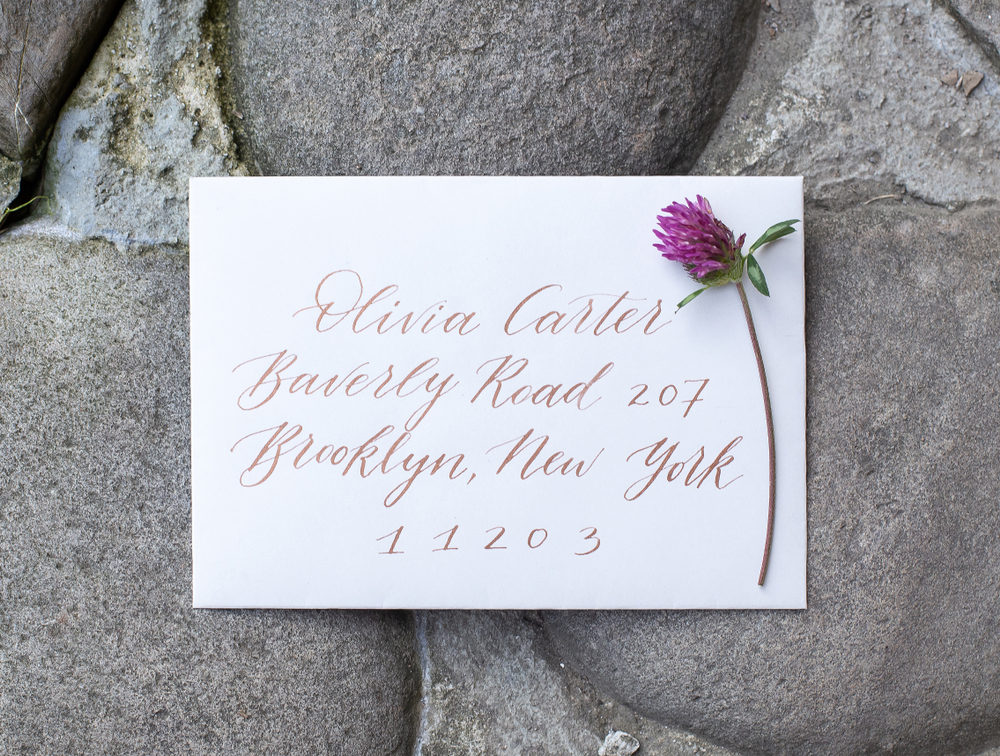 Olivia Carter
Baverly Road 207
Brooklyn, New York
11203